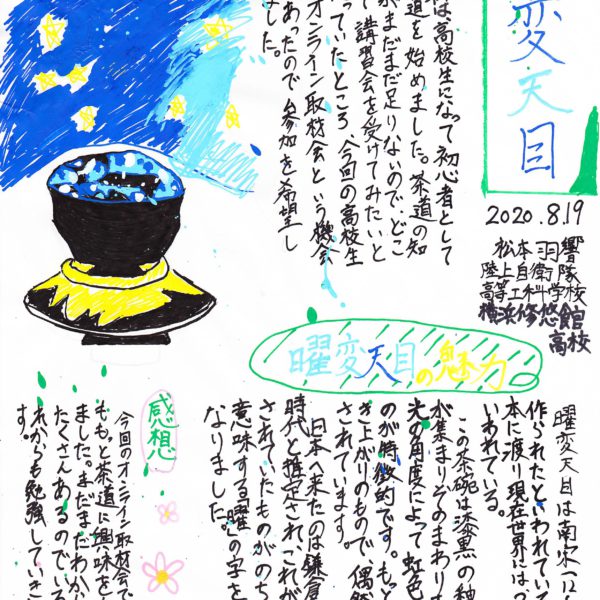 変天目
2020.8.19
松本羽響
陸上自衛隊
高等工科学校
横浜修悠館
高校
は高校生になって初心者として
道を始めました。茶道の知
がまだまだ足りないので、どこ
て講習会を受けてみたいと
っていたところ、今回の高校生
オンライン取材会という機会
あったので参加を希望し
した。
曜変天目の魅力
曜変天目は南宋(12
作られたといわれていて
本に渡り現在世界には
いわれている。
この茶碗は漆黒の釉
が集まりそのまわりも
光の角度によって虹色
のが特徴的です。もっ
き上がりのもので、偶
されています。
日本へ来たのは鎌倉
時代と推定され、これが
されていたものがのち
意味する「曜」の字を
なりました。
感想
今回のオンライン取材会で
ももっと茶道に興味を
ました。まだまだわか
たくさんあるのでいろ
れからも勉強していき
す。